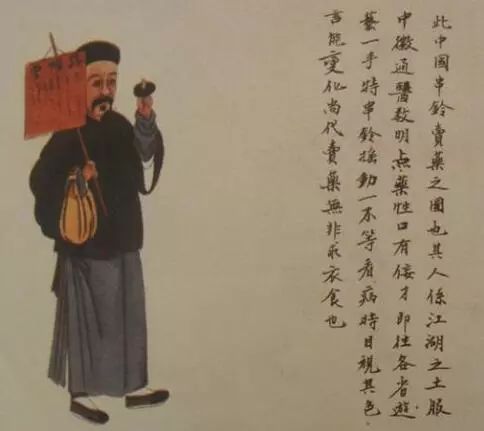 此中國串鈴賣藥之圖也其人係江湖之士服
中微通醫教明点藥性口有佞才即往各省遊
藝一手特串鈴摇動一不等看病時目視其色
言能變化尚代賣藥無非求衣食也